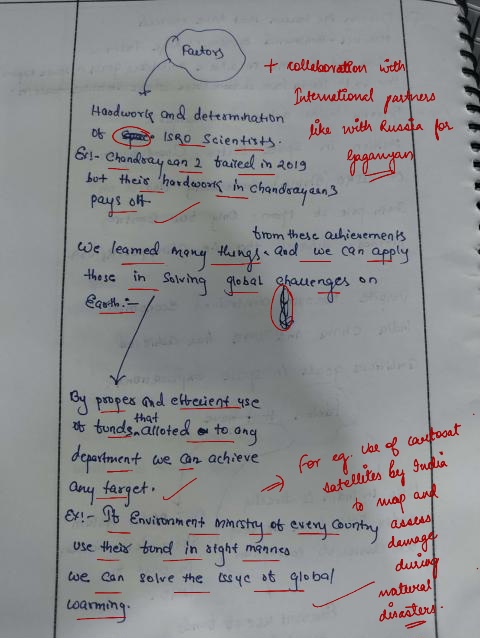 Factors
+ collaboration with
International partners
like with Russia for
Gaganyan
Hardwork and determination
of ISRO Scientists.
Ex:- Chandrayaan 2 failed in 2019
but their hardwork in chandrayaan 3
pays off.
from these achievements
We learned many things and we can apply
those in solving global challenges on
Earth:-
By proper and effecient use
of funds that alloted to any
department we can achieve
any target.
Ex:- If Environment ministry of every country
use their fund in right manner
we can solve the issue of global
warming.
⇒ For eg. Use of cartosat
satellites by India
to map and
assess
damage
during
natural
disasters.